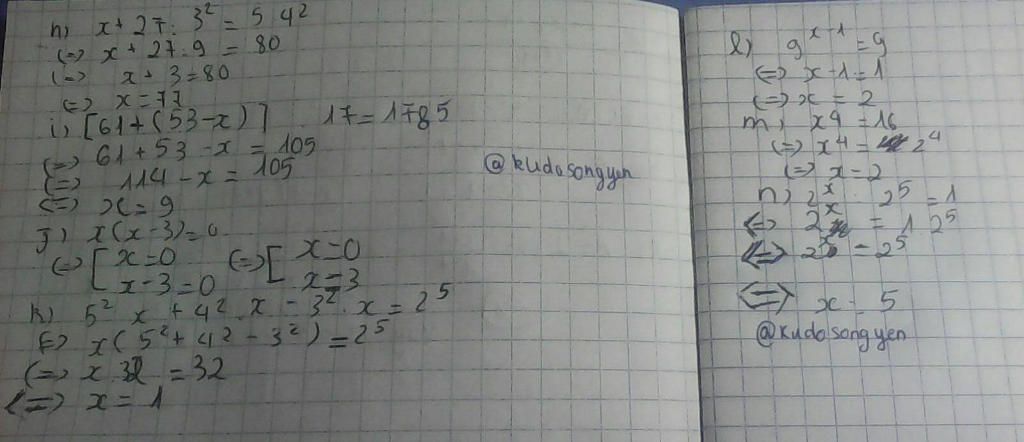 h) x + 27 : 3² = 5 4²
<=> x + 27 : 9 = 80
<=> x + 3 = 80
<=> x = 77
i) [61 + (53 - x)] 17 = 1785
<=> 61 + 53 - x = 105
<=> 114 - x = 105
<=> x = 9
j) x(x - 3) = 0
<=> [ x = 0 <=> [ x = 0
x - 3 = 0 x = 3
k) 5² x + 4² . x - 3² . x = 2⁵
<=> x(5² + 4² - 3²) = 2⁵
<=> x 32 = 32
<=> x = 1
@kudosongyen
l) 9^(x-1) = 9
<=> x - 1 = 1
<=> x = 2
m) x⁴ = 16
<=> x⁴ = 2⁴
<=> x = 2
n) 2^x : 2⁵ = 1
<=> 2^x = 1 2⁵
<=> 2^x = 2⁵
<=> x = 5
@kudosongyen